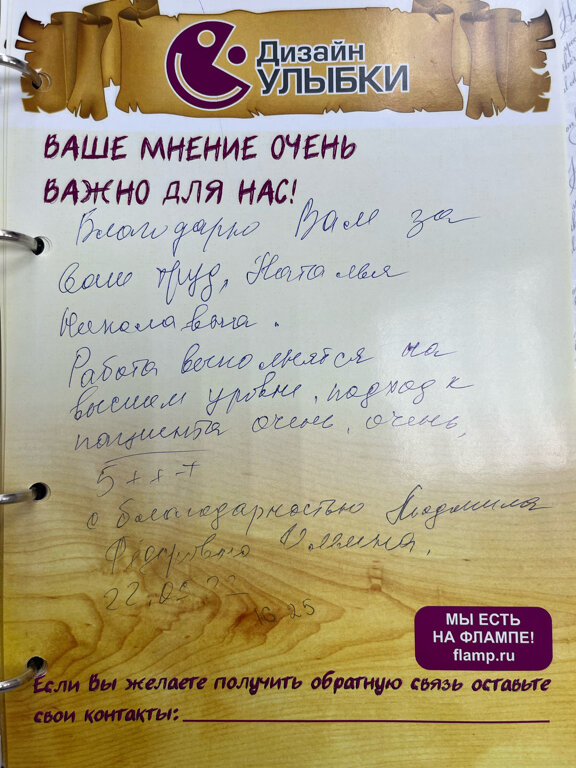 Дизайн
УЛЫБКИ
ВАШЕ МНЕНИЕ ОЧЕНЬ
ВАЖНО ДЛЯ НАС!
Благодарю Вам за
Ваш труд, Наталья
Николавына.
Работа выполнятся на
высшем уровне, подход к
пациента очень, очень,
5+++
с благодарностью Людмила
Фёдоровна
22.09.22
16 25
МЫ ЕСТЬ
НА ФЛАМПЕ!
flamp.ru
Если Вы желаете получить обратную связь оставьте
свои контакты: